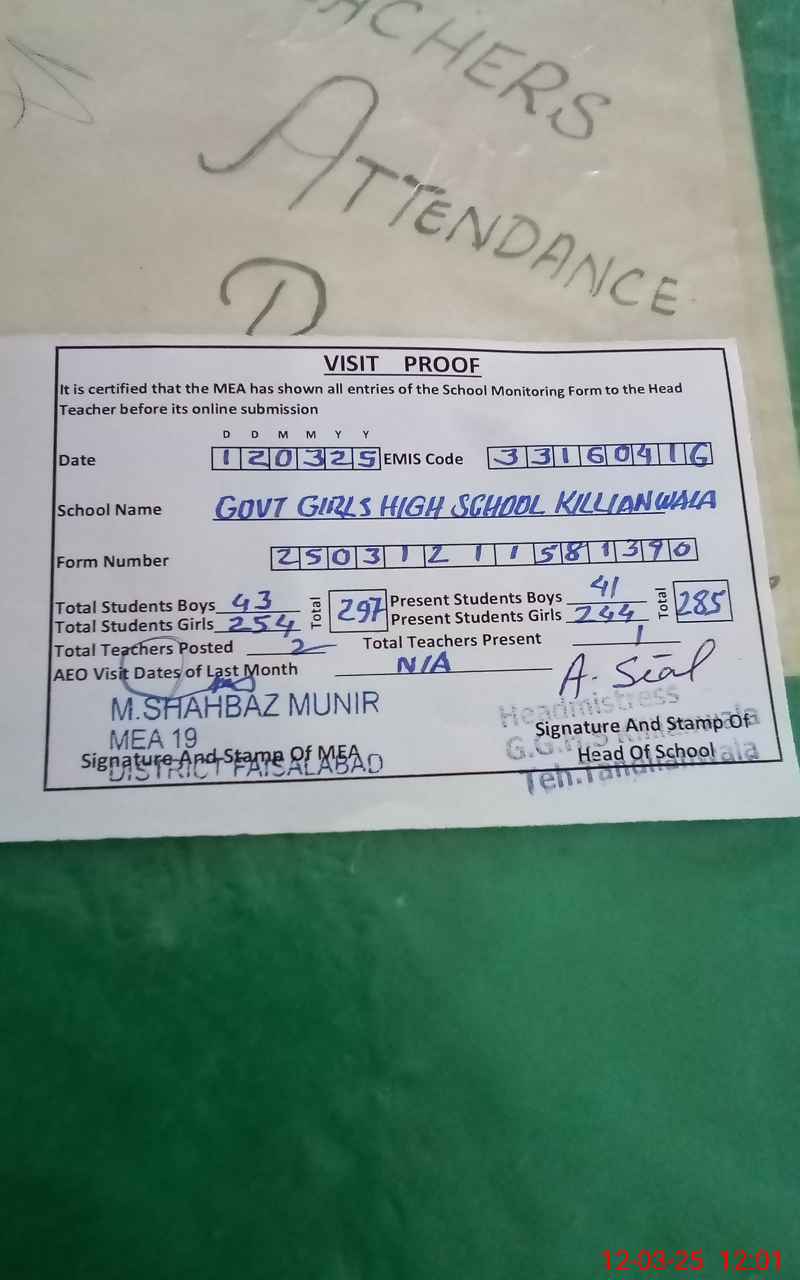 TEACHERS
ATTENDANCE
VISIT PROOF
It is certified that the MEA has shown all entries of the School Monitoring Form to the Head
Teacher before its online submission
D D M M Y Y
Date 120325 EMIS Code 33160416
School Name GOVT GIRLS HIGH SCHOOL KILLIANWALA
Form Number 25031211581390
Total Students Boys 43 Total 297 Present Students Boys 41 Total 285
Total Students Girls 254 Present Students Girls 244
Total Teachers Posted 2 Total Teachers Present 1
AEO Visit Dates of Last Month N/A A. Sial
M.SHAHBAZ MUNIR Headmistress
MEA 19 Signature And Stamp Of
Signature And Stamp Of MEA Head Of School
DISTRICT FAISALABAD Teh.Tandlianwala
12-03-25 12:01